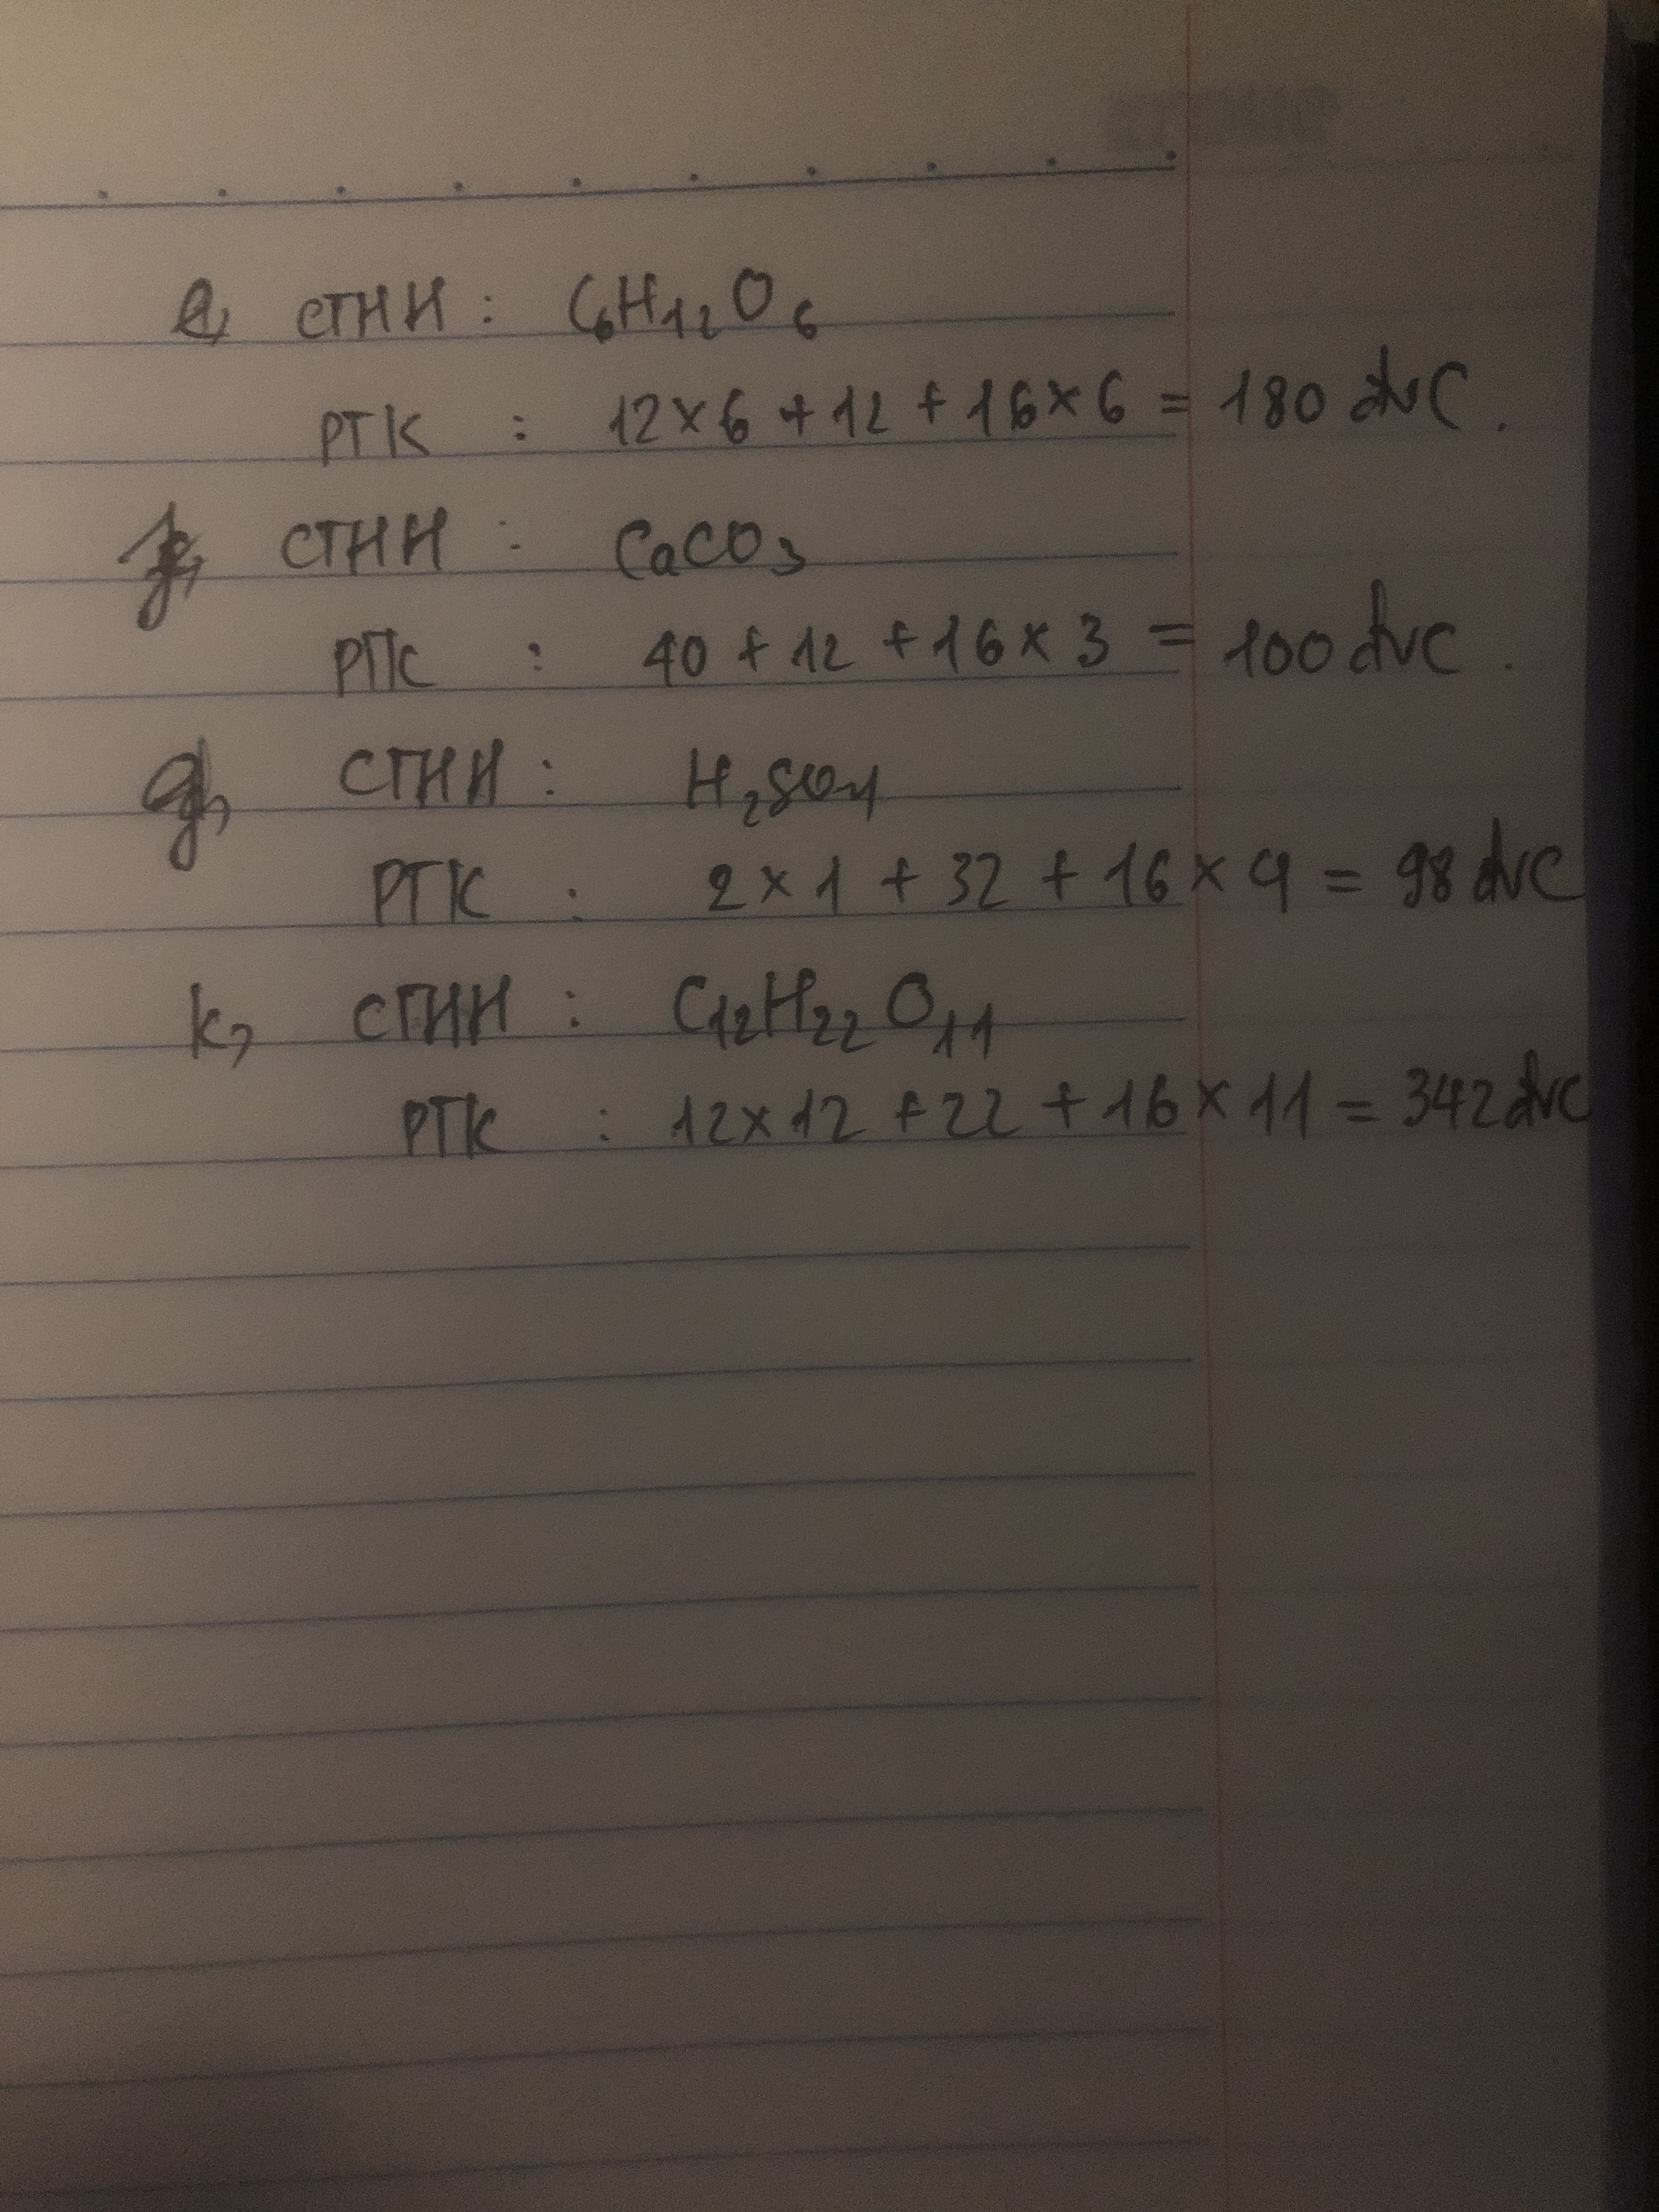 e, CTHH : C₆H₁₂O₆
PTK : 12×6 + 12 + 16×6 = 180 đvC.
CTHH : CaCO₃
PTK : 40 + 12 + 16×3 = 100 đvC.
g, CTHH : H₂SO₄
PTK : 2×1 + 32 + 16×4 = 98 đvC
k, CTHH : C₁₂H₂₂O₁₁
PTK : 12×12 + 22 + 16×11 = 342 đvC